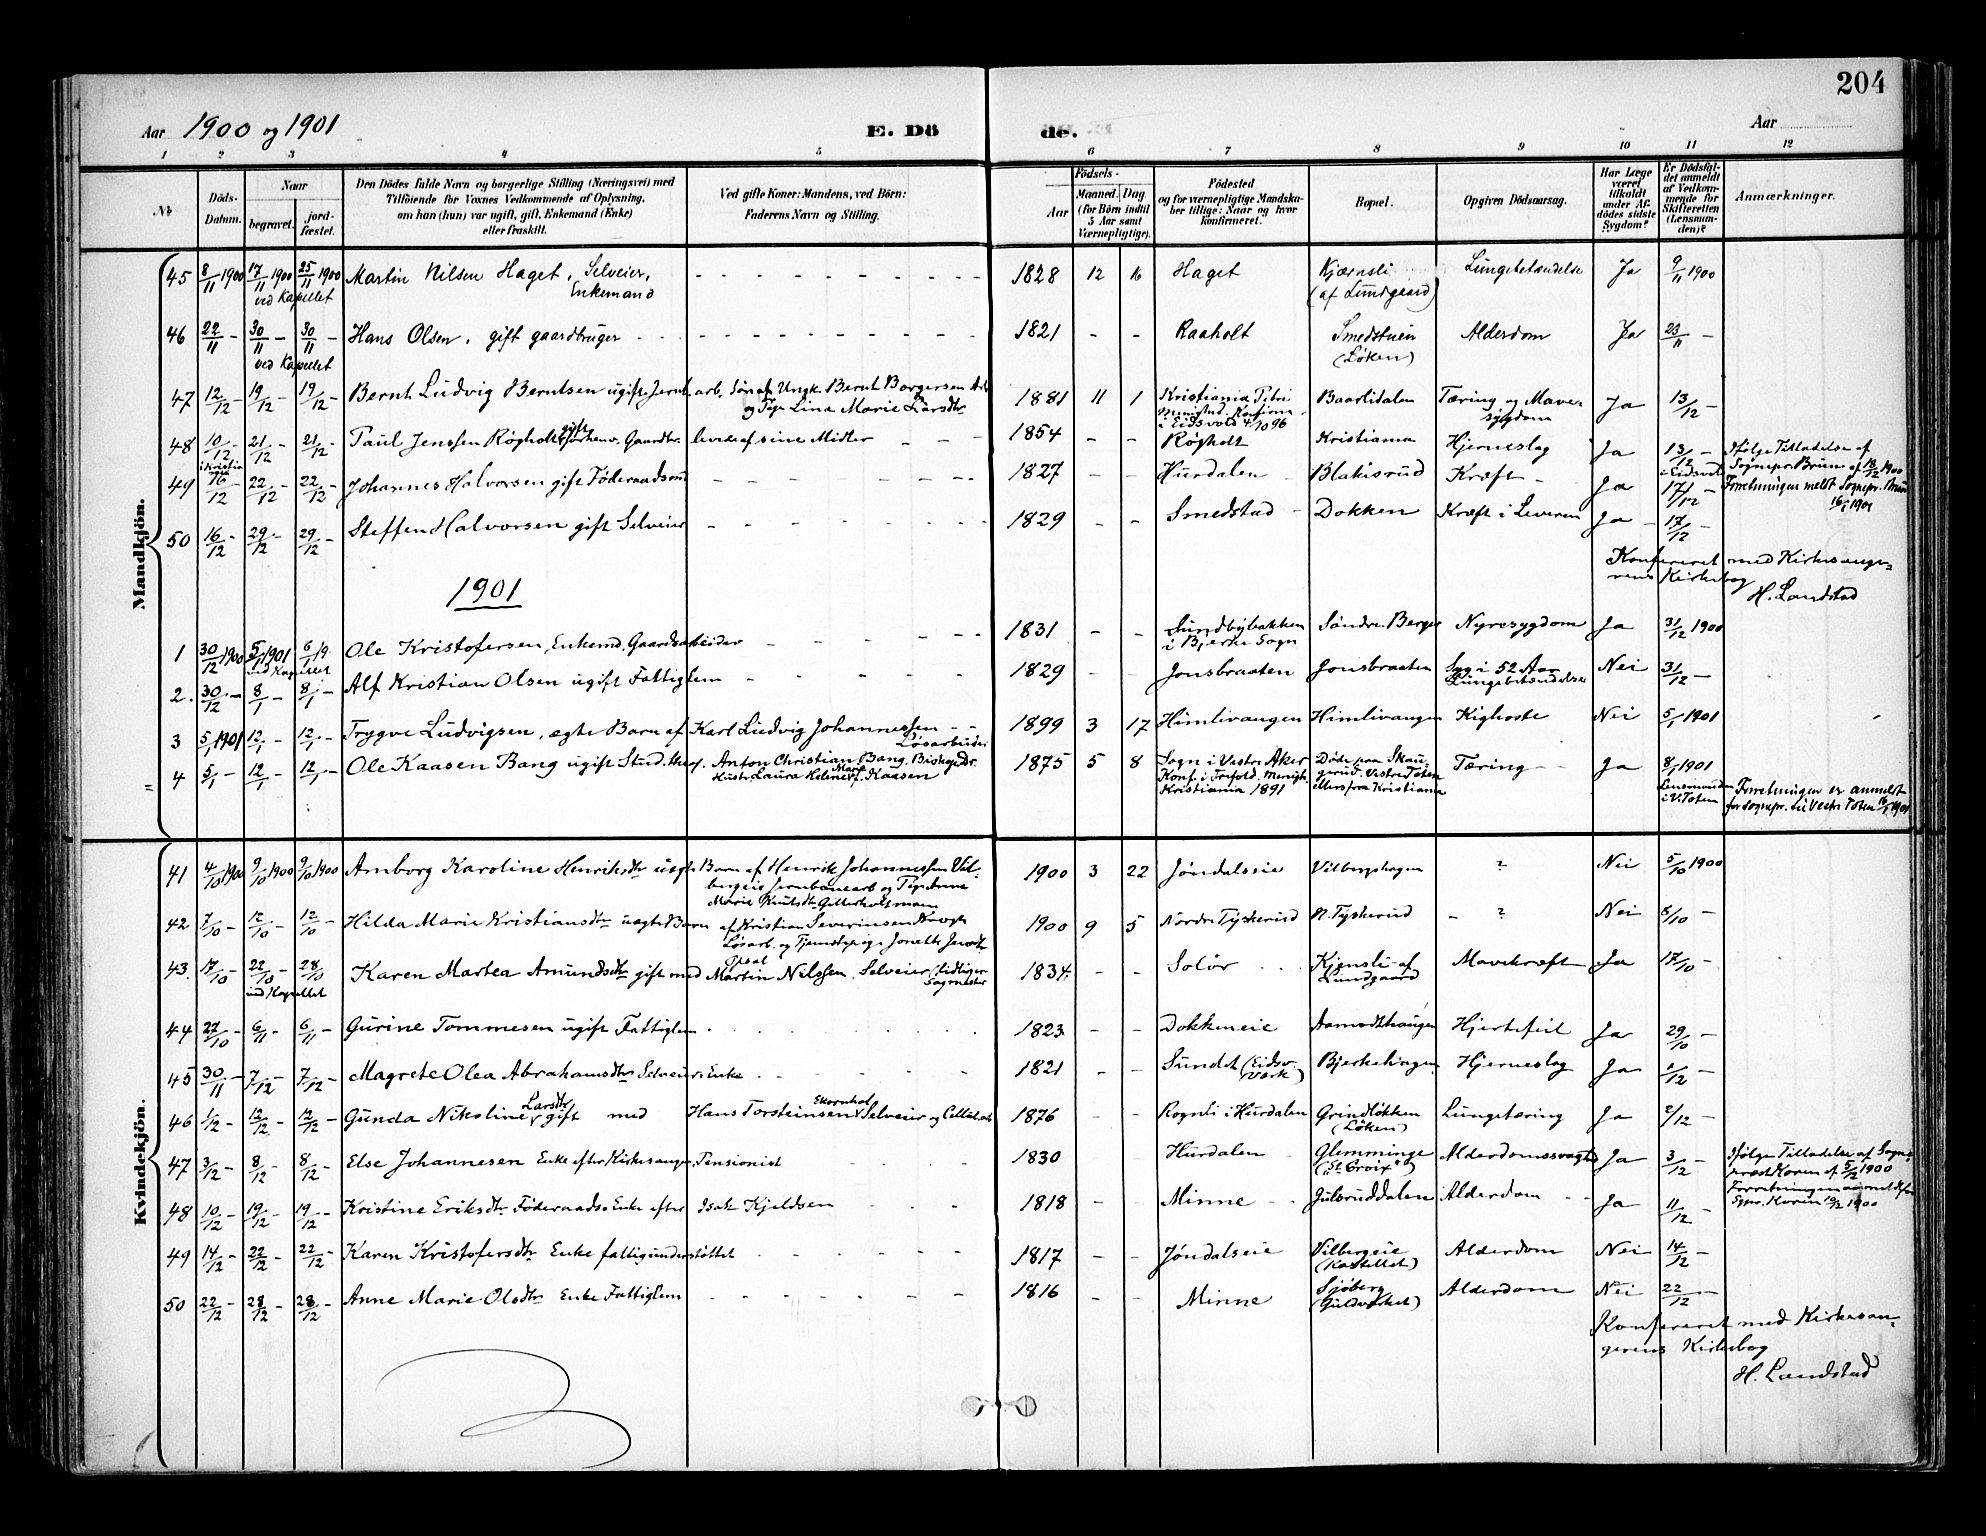 204
Aar 1900 og 1901 E. Dö de. Aar
1 2 3 4 5 6 7 8 9 10 11 12
No. Döds-Datum. Naar begravet. jordfæstet. Den Dödes fulde Navn og borgerlige Stilling (Næringsvei) med Tilföiende for Voxnes Vedkommende af Oplysning, om han (hun) var ugift, gift, Enkemand (Enke) eller fraskilt. Ved gifte Koner: Mandens, ved Börn: Faderens Navn og Stilling. Födsels- Aar Maaned Dag (for Börn indtil 5 Aar samt Værnepligtige). Födested og for værnepligtige Mandskaber tillige: Naar og hvor konfirmeret. Bopæl. Opgiven Dödsaarsag. Har Læge været tilkaldt under Afdödes sidste Sygdom? Er Dödsfaldet anmeldt af Vedkommende for Skifteretten (Lensmanden)? Anmærkninger.
Mandkjön.
45 8/11 1900 17/11 1900 25/11 1900 ved Kapellet Martin Nilsen Haget, Selveier, Enkemand 1828 12 16 Haget Kjærnsli (af Lundgaard) Lungebetændelse Ja 9/11 1900
46 22/11 - 30/11 - 30/11 - ved Kapellet Hans Olsen, gift gaardbruger 1821 - - Raaholt Smedstuen (Løken) Alderdom Ja 23/11 -
47 12/12 - 19/12 - 19/12 - Bernt Ludvig Berntsen ugift Jernb.arb. Søn af Ungk. Bernt Borgersen Arb og Pige Lina Marie Larsdtr 1881 11 1 Kristiania Petri Menighed. Konfirm. i Eidsvold 4/10 96 Baarlidalen Tæring og Mavesygdom Ja 13/12 -
48 10/12 - i Kristiania 21/12 - 21/12 - Paul Jenssen Røgholt gift forhenv. Gaardbr. lever af sine Midler 1854 - - Røgholt Kristiania Hjerneslag Ja 13/12 - i Eidsvold Ifølge Tilladelse af Sognepr. Bruun af 18/12 1900
49 16/12 22/12 - 22/12 - Johannes Halvorsen gift Føderaadsmd 1827 - - Hurdalen Blakisrud Kræft - Ja 17/12 - Forretningen meldt Sognepr. Bruun 16/1 1901
50 16/12 - 29/12 - 29/12 - Steffen Halvorsen gift Selveier 1829 - - Smedstad Dokken Kræft i Leveren Ja 17/12 -
Konfereret med Kirkesangerens Kirkebog
H. Landstad
1901
1 30/12 1900 5/1 1901 ved Kapellet 6/1 19 Ole Kristofersen, Enkemd. Gaardsarbeider 1831 - - Sundbybakken i Bjerke Sogn Søndre Berger Nyresygdom Ja 31/12 1900
2. 30/12 - 8/1 - 8/1 - Alf Kristian Olsen ugift Fattiglem 1829 - - Jonsbraaten Jonsbraaten Syg i 52 Aar Lungebetændelse Nei 31/12 -
3 5/1 1901 12/1 - 12/1 - Trygve Ludvigsen, ægte Barn af Karl Ludvig Johannessen Løsarbeider 1899 3 17 Himlivangen Himlivangen Kighoste Nei 5/1 1901
4 5/1 - 12/1 - 12/1 - Ole Kaasen Bang ugift Stud. theol. Anton Christian Bang, Biskop Dr. Hustr. Laura Helene Marie f. Kaasen 1875 5 8 Sogn i Vestre Aker Konf. i Trefold. Menigh. Kristiania 1891 Døde paa Skaugerud. Vestre Toten ellers fra Kristiania Tæring Ja 8/1 1901 Lensmanden i V. Toten Forretningen er anmeldt for Sognepr. til Vestre Toten 16/1 1901
Kvindekjön.
41 4/10 1900 9/10 1900 9/10 1900 Arnborg Karoline Henriksdtr uægte Barn af Henrik Johannessen Vilbergeie Jernbanearb og Pige Anna Marie Knutsdtr Gilterholtmoen 1900 3 22 Jøndalseie Vilberghagen ? Nei 5/10 1900
42 7/10 - 12/10 - 12/10 - Hilda Marie Kristiansdtr uægte Barn af Kristian Severinsen Krogh Løsarb. og Tjenestepige Jonette Jensdtr 1900 9 5 Nordre Tyskerud N. Tyskerud - ? Nei 8/10 -
43. 17/10 - 22/10 - 28/10 - ved Kapellet Karen Martea Amundsdtr gift med Martin Nilssen Opsal Selveier (tidliger Sagmester 1834. - - Solør Kjensli af Lundgaard Mavekræft Ja 17/10 -
44 27/10 - 6/11 - 6/11 - Gurine Tommesen ugift Fattiglem 1823 - - Dokkeneie Aamodthaugen Hjertefeil Ja 29/10 -
45 30/11 - 7/12 - 7/12 - Magrete Olea Abrahamsdtr Selveiers Enke 1821 - - Sundet (Eidsv. Værk) Bjerkehagen Hjerneslag Ja 1/12 -
46 1/12 - 12/12 - 12/12 - Gunda Nikoline Larsdtr gift med Hans Torsteinsen Ekornhol Selveier og 1876 - - Rognli i Hurdalen Grindløkken (Løken) Lungetæring Ja 2/12 -
47 3/12 - 8/12 - 8/12 - Else Johannesen Enke efter Kirkesanger, Pensionist 1830 - - Hurdalen Glemminge ("St. Croix") Alderdomssvaghed Ja 3/12 - Ifølge Tilladelse af Sogneprest Horen af 5/12 1900 Forretningen anmeldt for Sgpr. Horen 10/12 1900
48 10/12 - 19/12 - 19/12 - Kristine Eriksdtr Føderaads Enke efter Isak Kjeldsen 1818 - - Minne Julsruddalen Alderdom Ja 11/12 -
49 14/12 - 22/12 - 22/12 - Karen Kristofersdtr Enke fattigunderstøttet 1817 - - Jøndalseie Vilbergeie (Kastellet) Alderdom Nei 14/12 -
50 22/12 - 28/12 - 28/12 - Anne Marie Olsdtr Enke Fattiglem 1816 - - Minne Sjøberg (Guldverket) Alderdom Nei 22/12 -
Konfereret med Kirkesangerens Kirkebog
H. Landstad